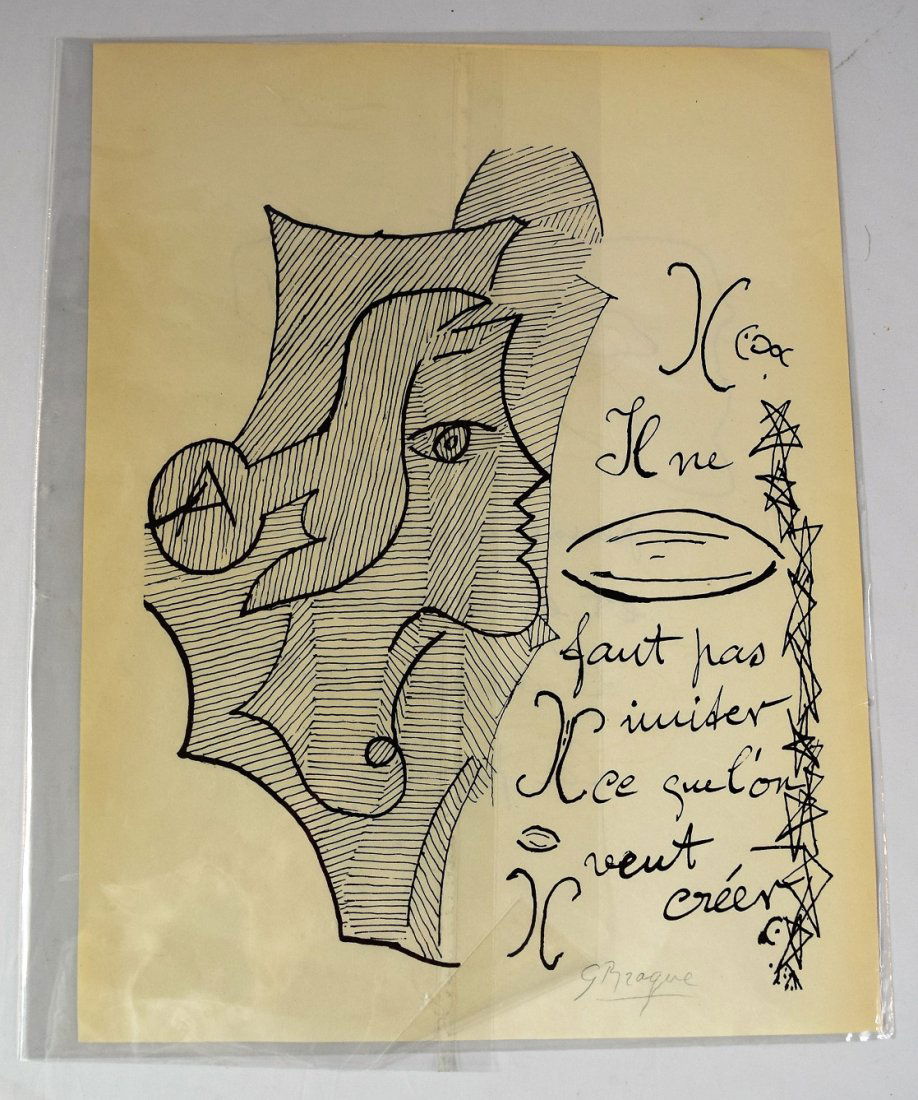 A
Il ne
faut pas
imiter
ce que l'on
veut
créer
G Braque